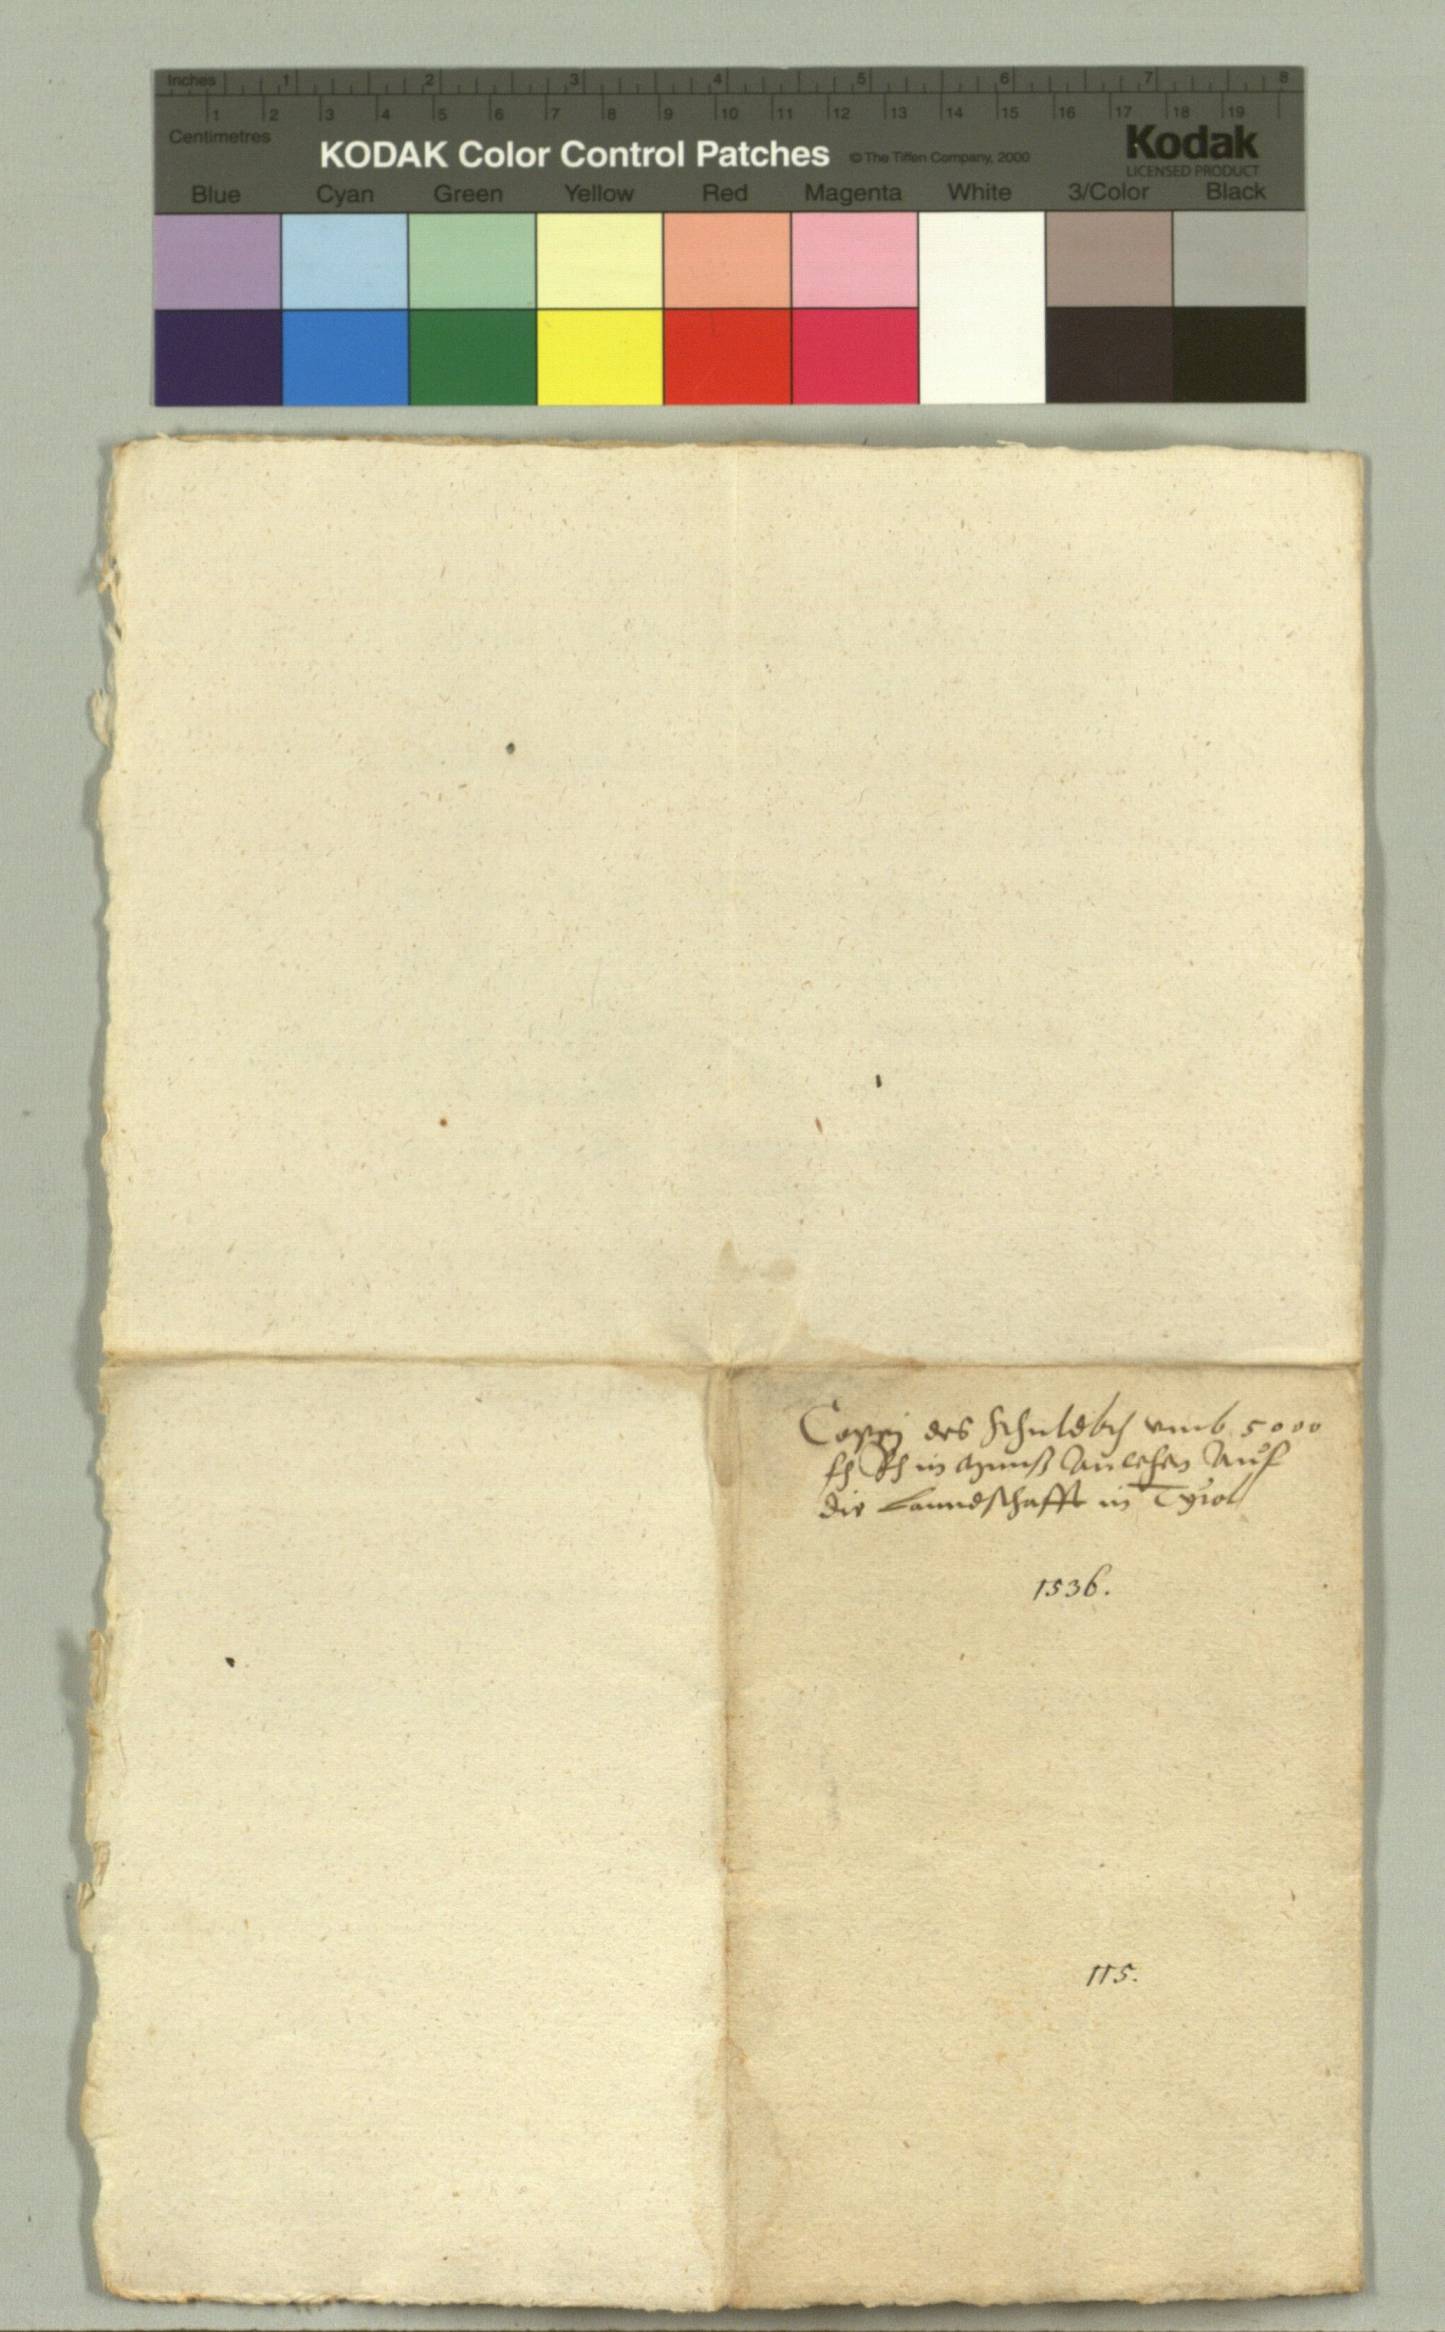 Inches 1 2 3 4 5 6 7 8
1 2 3 4 5 6 7 8 9 10 11 12 13 14 15 16 17 18 19
Centimetres
KODAK Color Control Patches © The Tiffen Company, 2000 Kodak
LICENSED PRODUCT
Blue Cyan Green Yellow Red Magenta White 3/Color Black
Copej des Schuldbſ vmb 5000
fl Rh in Munß Anlehen Auf
die Lanndschafft in Tyrol
1536.
115.